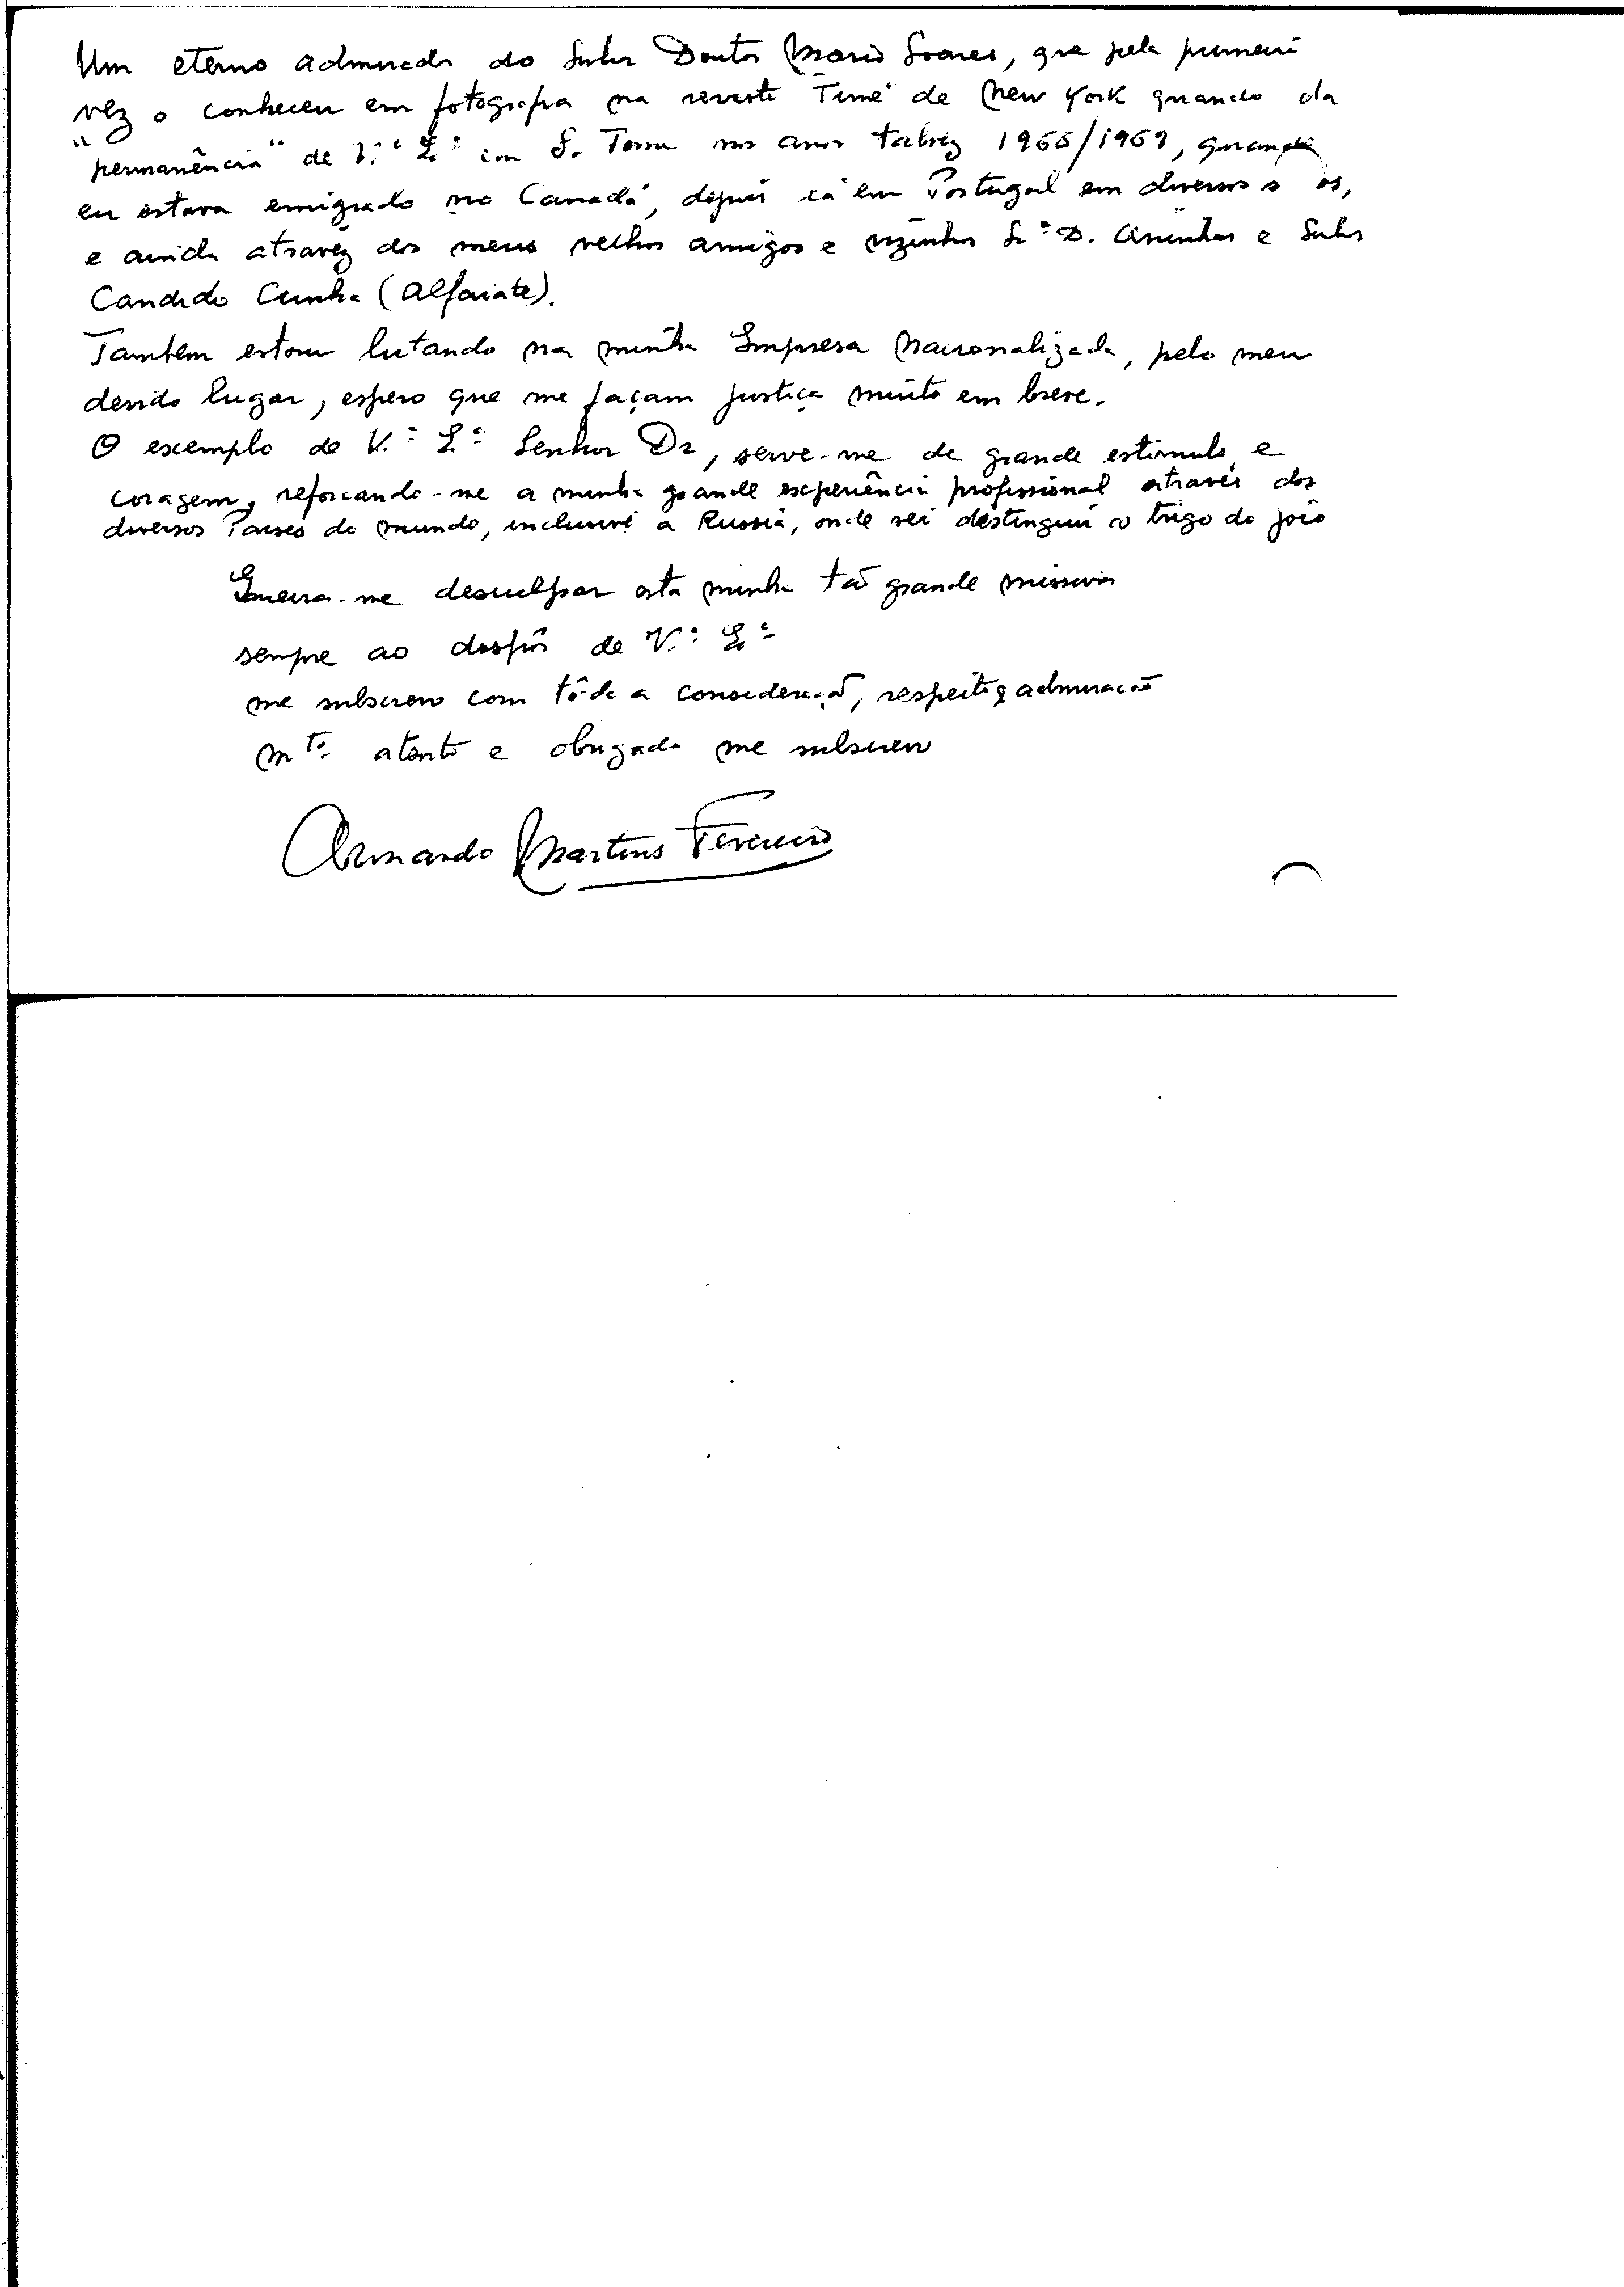 Um eterno admirador do Senhor Doutor Mario Soares, que pela primeira
vez o conheceu em fotografia na revista "Time" de New York quando da
"permanência" de V.ª E.ª em S. Tomé nos anos talvez 1968/1969, quando
eu estava emigrado no Canadá, depois cá em Portugal em diversos
e ainda atravéz dos meus velhos amigos e vizinhos Sr.ª D. Aninhas e Senhor
Candido Cunha (Alfaiate).
Tambem estou lutando na minha Empresa Nacionalizada, pelo meu
devido lugar, espero que me façam justiça muito em breve.
O exemplo de V.ª E.ª Senhor Dr, serve-me de grande estimulo, e
coragem, reforcando-me a minha grande experiência profissional através dos
diversos Paises do mundo, inclusivé a Russia, onde sei destinguir o trigo do joio
Queira-me desculpar esta minha tão grande missiva
sempre ao dispôr de V.ª E.ª
me subscrevo com tôda a consideração, respeito e admiração
m.to atento e obrigado me subscrevo
Armando Martins Fevereiro